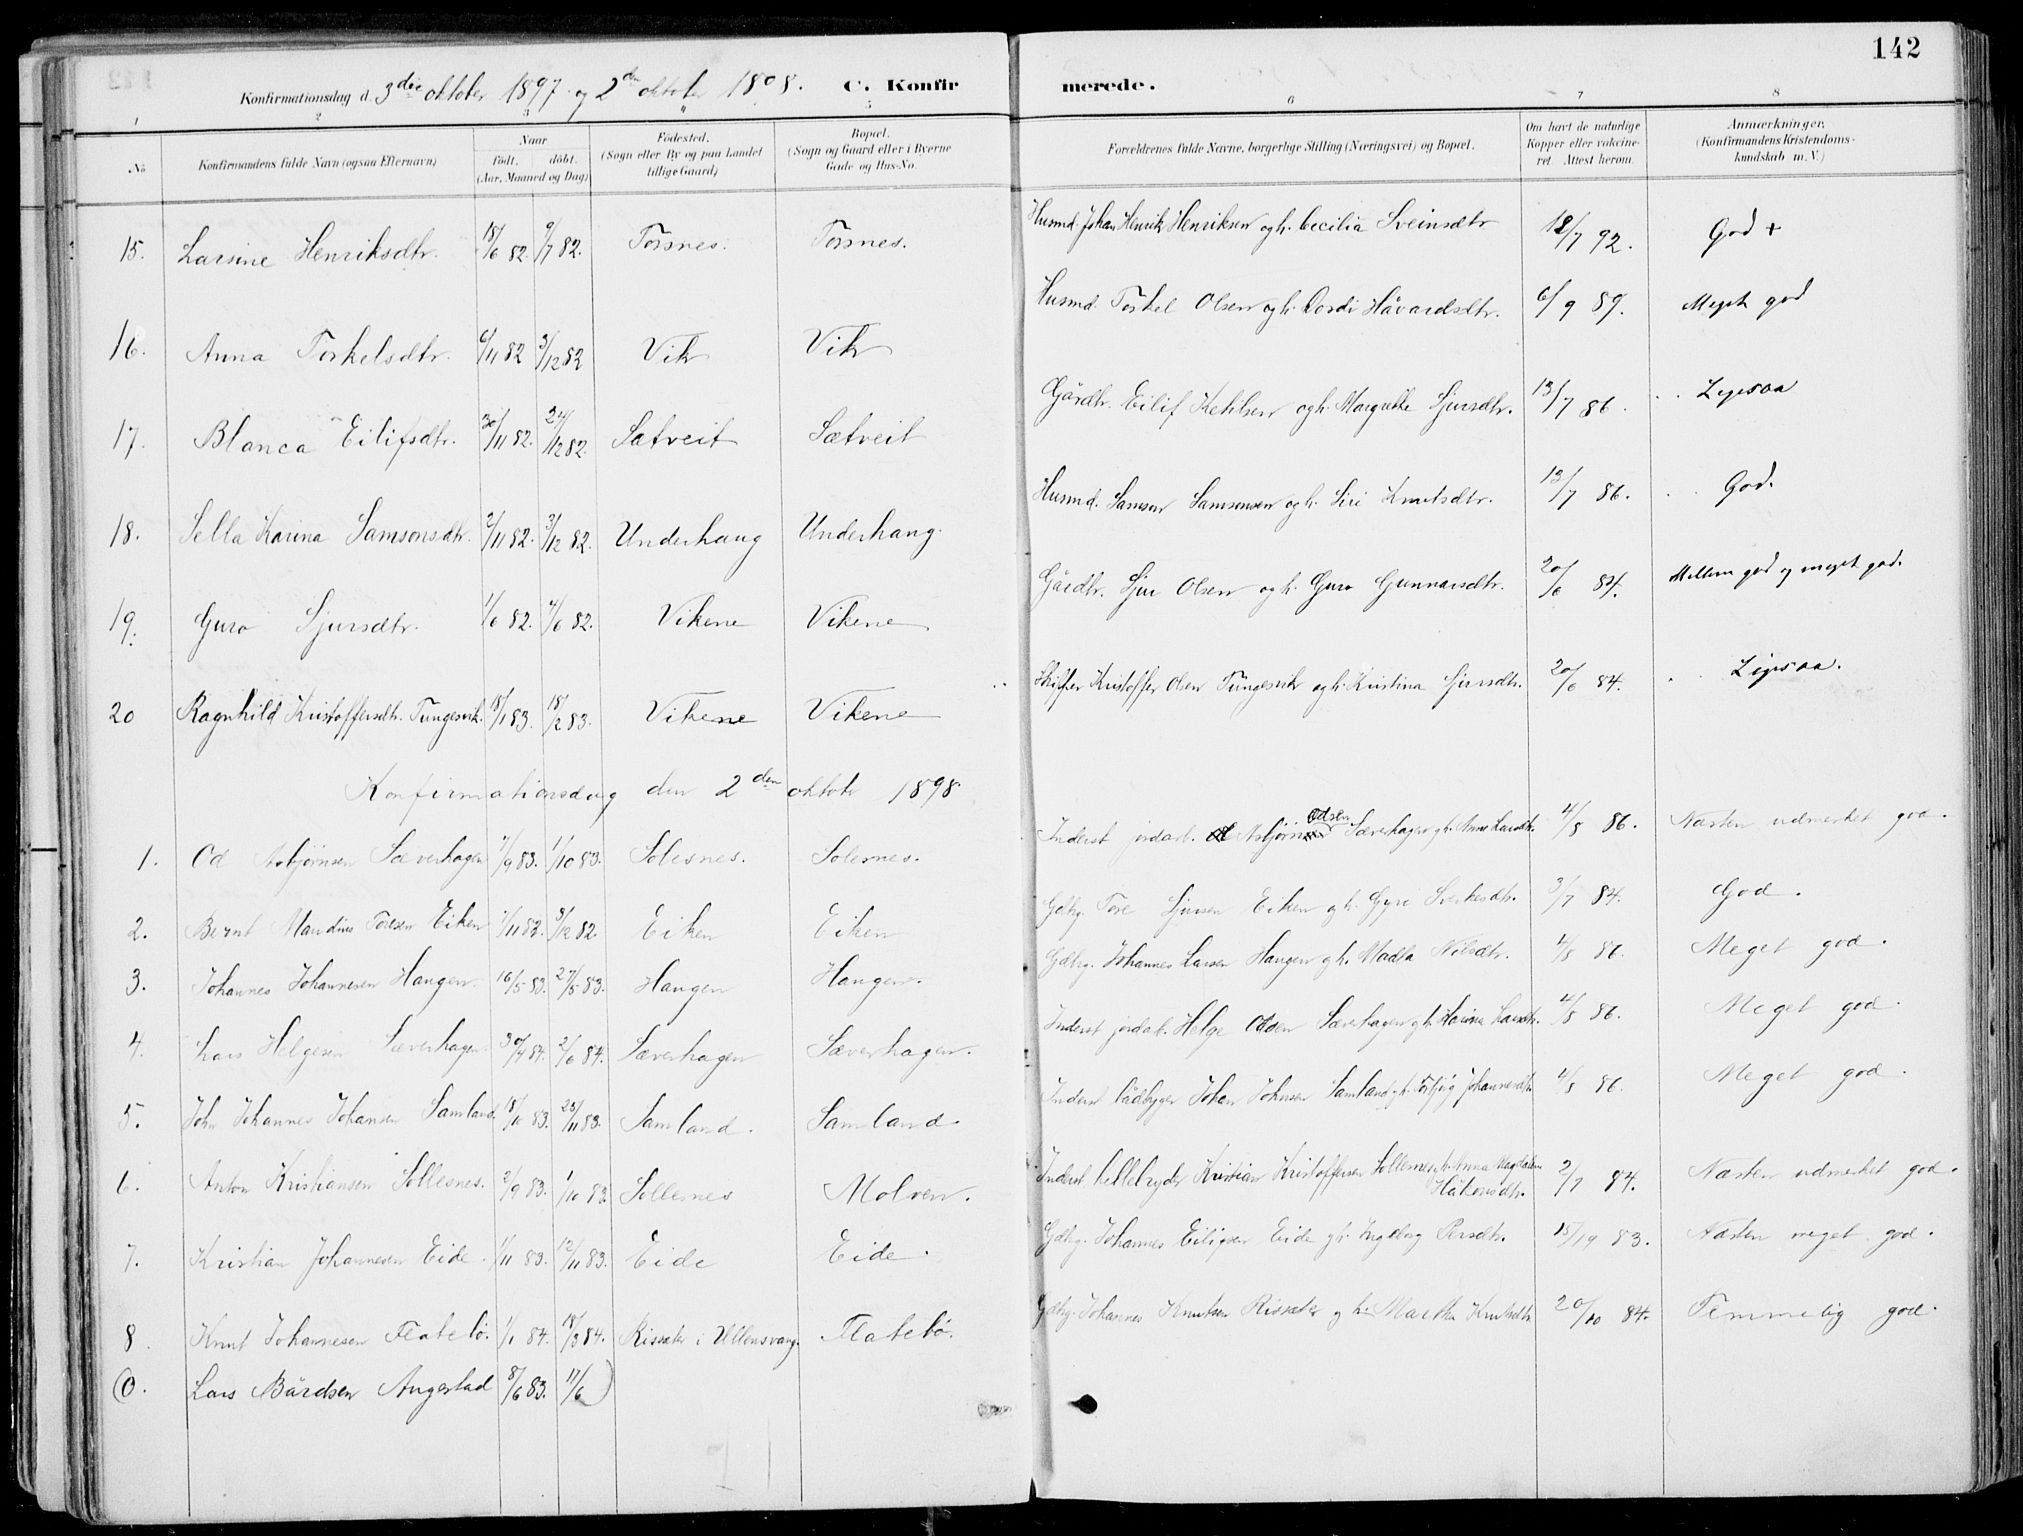 142
Konfirmationsdag d. 3die oktober 1897 og 2den oktober 1898. C. Konfir merede.
1 2 3 4 5 6 7 8
No Konfirmandens fulde Navn (ogsaa Efternavn) Naar födt. döbt. (Aar, Maaned og Dag) Födested. (Sogn eller By og paa Landet tillige Gaard) Bopæl. (Sogn og Gaard eller i Byerne Gade og Hus-No. Forældrenes fulde Navne, borgerlige Stilling (Næringsvei) og Bopæl. Om havt de naturlige Kopper eller vakcineret. Attest herom. Anmærkninger. (Konfirmandens Kristendomskundskab m. V.)
15. Larsine Henriksdtr. 18/6 82. 9/7 82. Torsnes. Torsnes. Husmd. Johan Henrik Henriksen og h. Cecilia Sveinsdtr 18/7 92. God +
16. Anna Torkelsdtr. 6/11 82 3/12 82 Vik Vik Husmd. Torkel Olsen og h. Dordi Håvardsdtr. 6/9 89. Meget god
17. Blanca Eilifsdtr. 30/11 82. 24/12 82. Sætveit Sætveit Gårdbr. Eilif Ketilsen og h. Margrethe Sjursdtr. 13/7 86. Ligesaa
18. Sella Karina Samsonsdtr. 2/11 82. 3/12 82. Underhaug Underhaug. Husmd. Samson Samsonsen og h. Siri Knutsdtr. 13/7 86. God.
19. Guro Sjursdtr. 1/6 82. 4/6 82. Vikene Vikene Gårdbr. Sjur Olsen og h. Guro Gunnarsdtr. 20/6 84. Mellem god og meget god.
20 Ragnhild Kristoffersdtr. Tungesvik. 18/1 83. 18/2 83. Vikene Vikene Skipper Kristoffer Olsen Tungesvik og h. Kristina Sjursdtr. 20/6 84. Ligesaa.
Konfirmationsdag den 2den oktobr 1898
1. Od Asbjørnsen Sæverhagen 7/9 83. 1/10 83. Solesnes. Solesnes. Inderst jordarb. Asbjørn Odsen Sæverhagen og h. Anna Larsdtr. 4/8 86. Næsten udmerket god.
2. Bernt Mandius Toresen Eiken 7/11 82. 3/12 82. Eiken Eiken Gdbrg. Tore Sjursen Eiken og h. Gyri Sverkesdtr. 3/7 84. God.
3. Johannes Johannesen Haugen. 16/5 83. 27/5 83. Haugen Haugen. Gdbrg. Johannes Larsen Haugen og h. Madla Nilsdtr. 4/8 86. Meget god.
4. Lars Helgesen Sæverhagen. 30/4 84. 2/6 84. Sæverhagen Sæverhagen. Inderst jordarb. Helge Odsen Sæverhagen og h. Karina Larsdtr. 4/8 86. Meget god
5. John Johannes Johansen Samland 18/10 83. 25/11 83. Samland. Samland. Inderst bådbygger Johan Johnsen Samland og h. Torbjøg Johannesdtr. 4/8 86. Meget god.
6. Anton Kristiansen Sollesnes. 2/9 83. 1/10 83. Sollesnes Molven. Inderst hellebryder Kristian Kristoffersen Sollesnes og h. Anna Magdalena Håkonsdtr. 2/7 84. Næsten udmerket god.
7. Kristian Johannesen Eide. 1/11 83. 12/11 83. Eide Eide. Gdbrg. Johannes Eiligsen Eide og h. Ingeborg Persdtr. 18/19 83. Næsten meget god.
8 Knut Johannesen Flatebø. 1/1 84. 18/3 84. Rissæter i Ullensvang. Flatebø. Gdbrg. Johannes Knutsen Rissæter og h. Martha Knutsdtr 20/10 84. Temmelig god.
(0. Lars Bårdsen Augestad 8/6 83. 17/6)